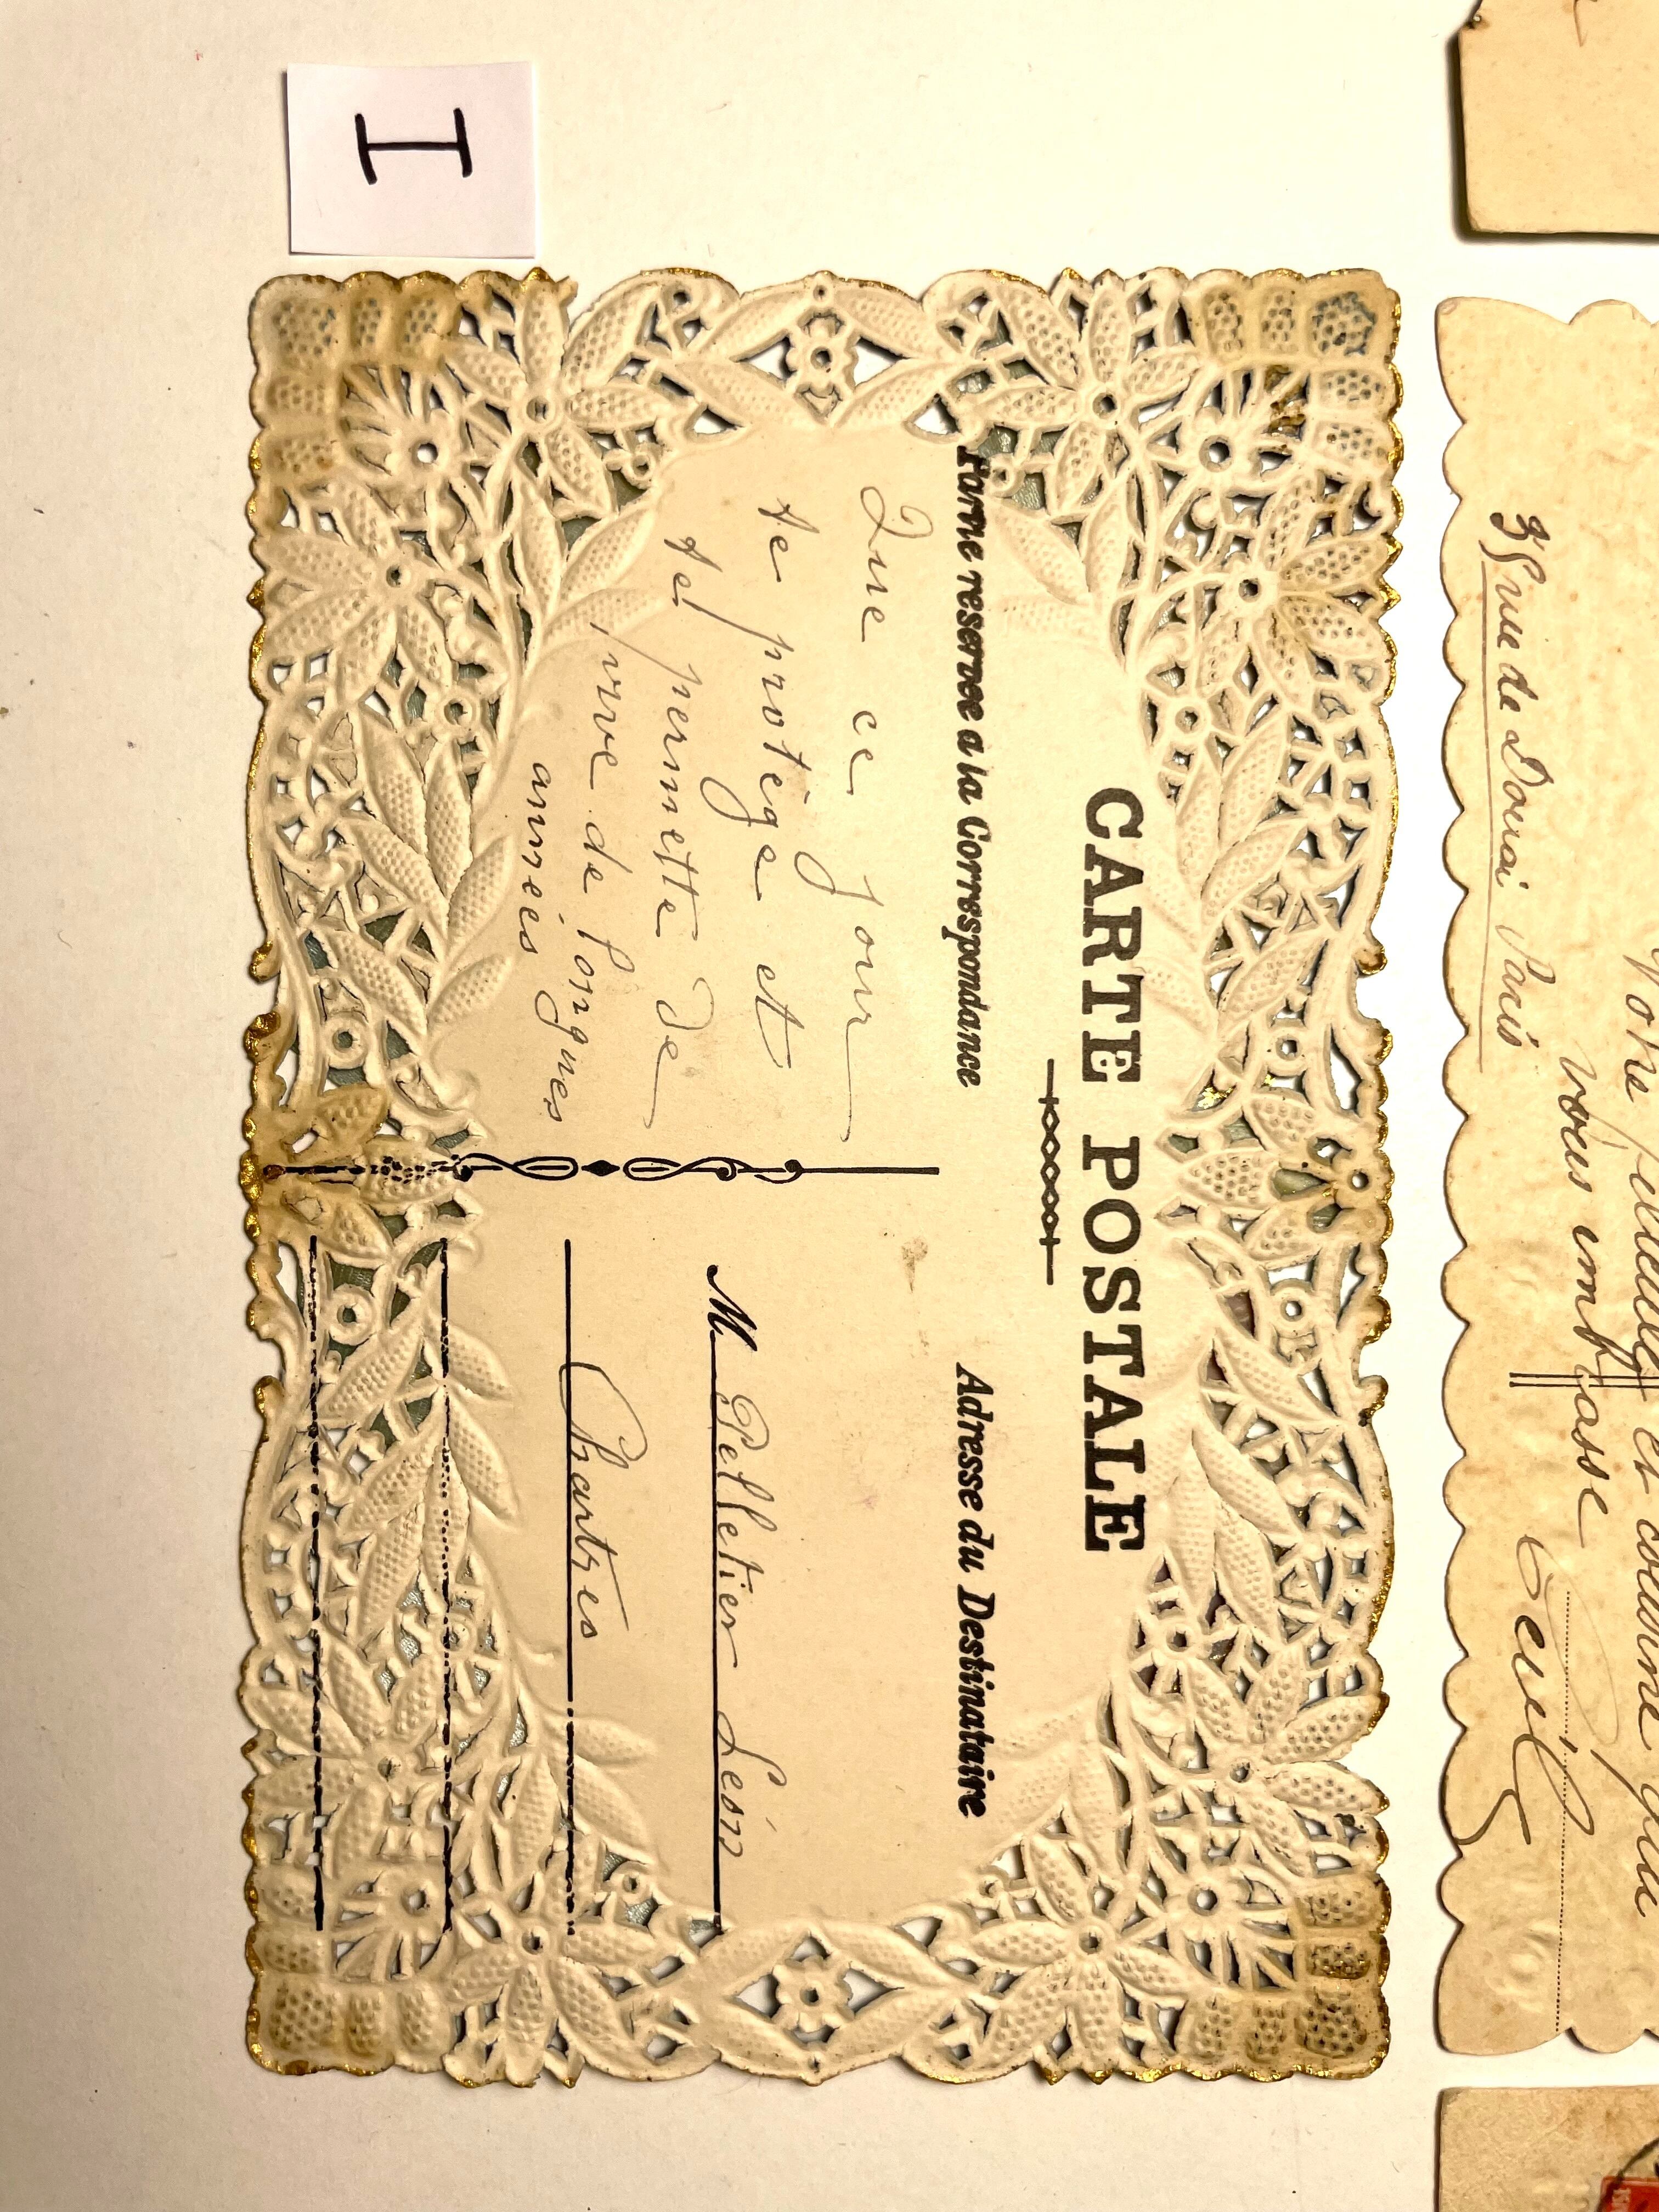 I
CARTE POSTALE
Partie reservee a la Correspondance
Adresse du Destinataire
Que ce jour
te protège et
te permette de
vivre de longues
années
M Pelletier Léon
Chartres
rue de Douai Paris
et comme
vous embrasse